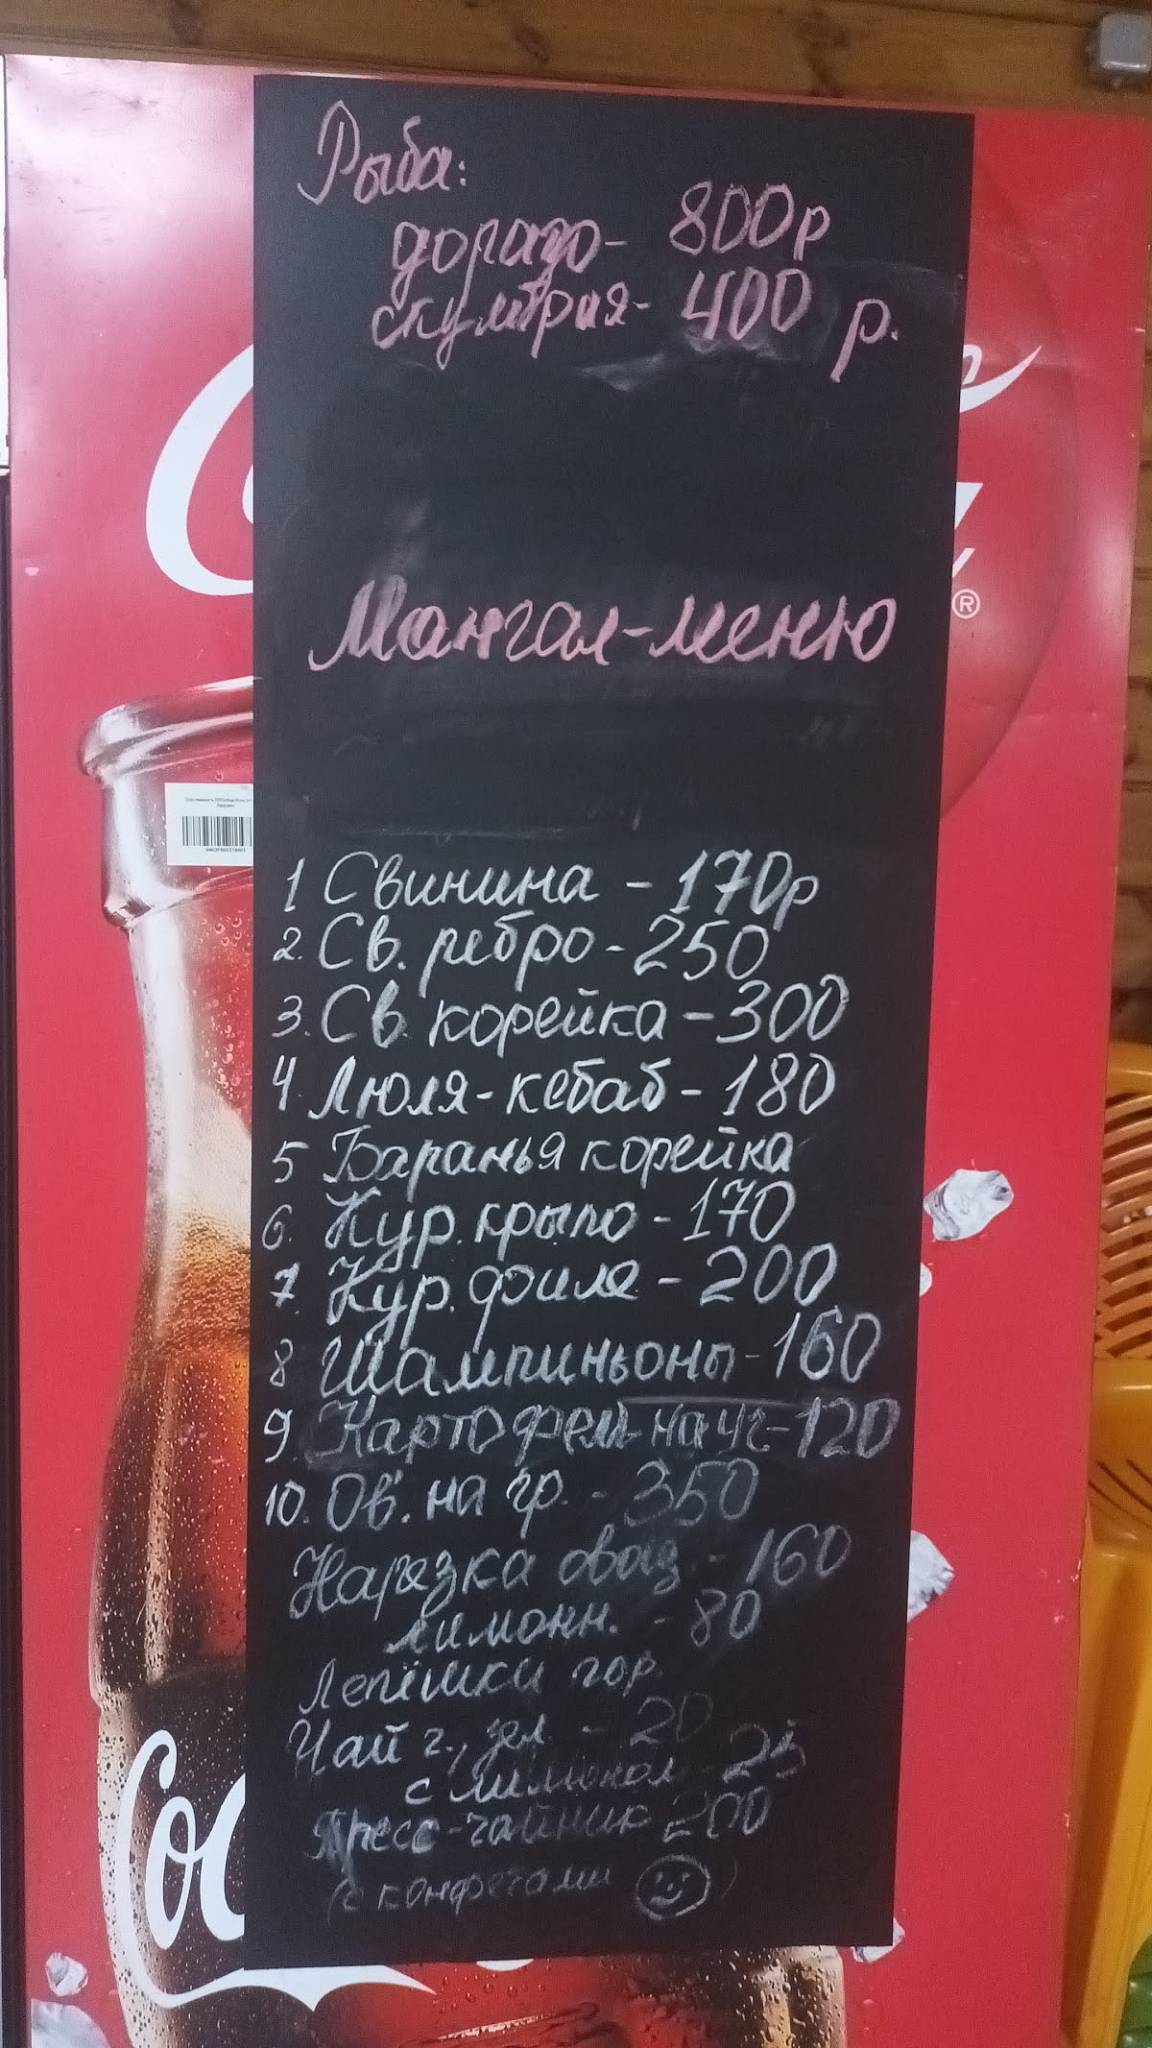 Рыба:
дорадо- 800р
скумбрия- 400 р.
Мангал-меню
1 Свинина - 170р
2. Св. ребро - 250
3. Св. корейка - 300
4. Люля-кебаб - 180
5 Баранья корейка
6. Кур. крыло - 170
7. Кур. филе - 200
8 Шампиньоны - 160
9. Картофель на уг - 120
10. Ов. на гр. - 350
Нарезка овощ. - 160
лимонн. - 80
Лепёшки гор.
Чай ч., зел. - 20
с лимоном - 25
Пресс-чайник 200
(с конфетами )
®